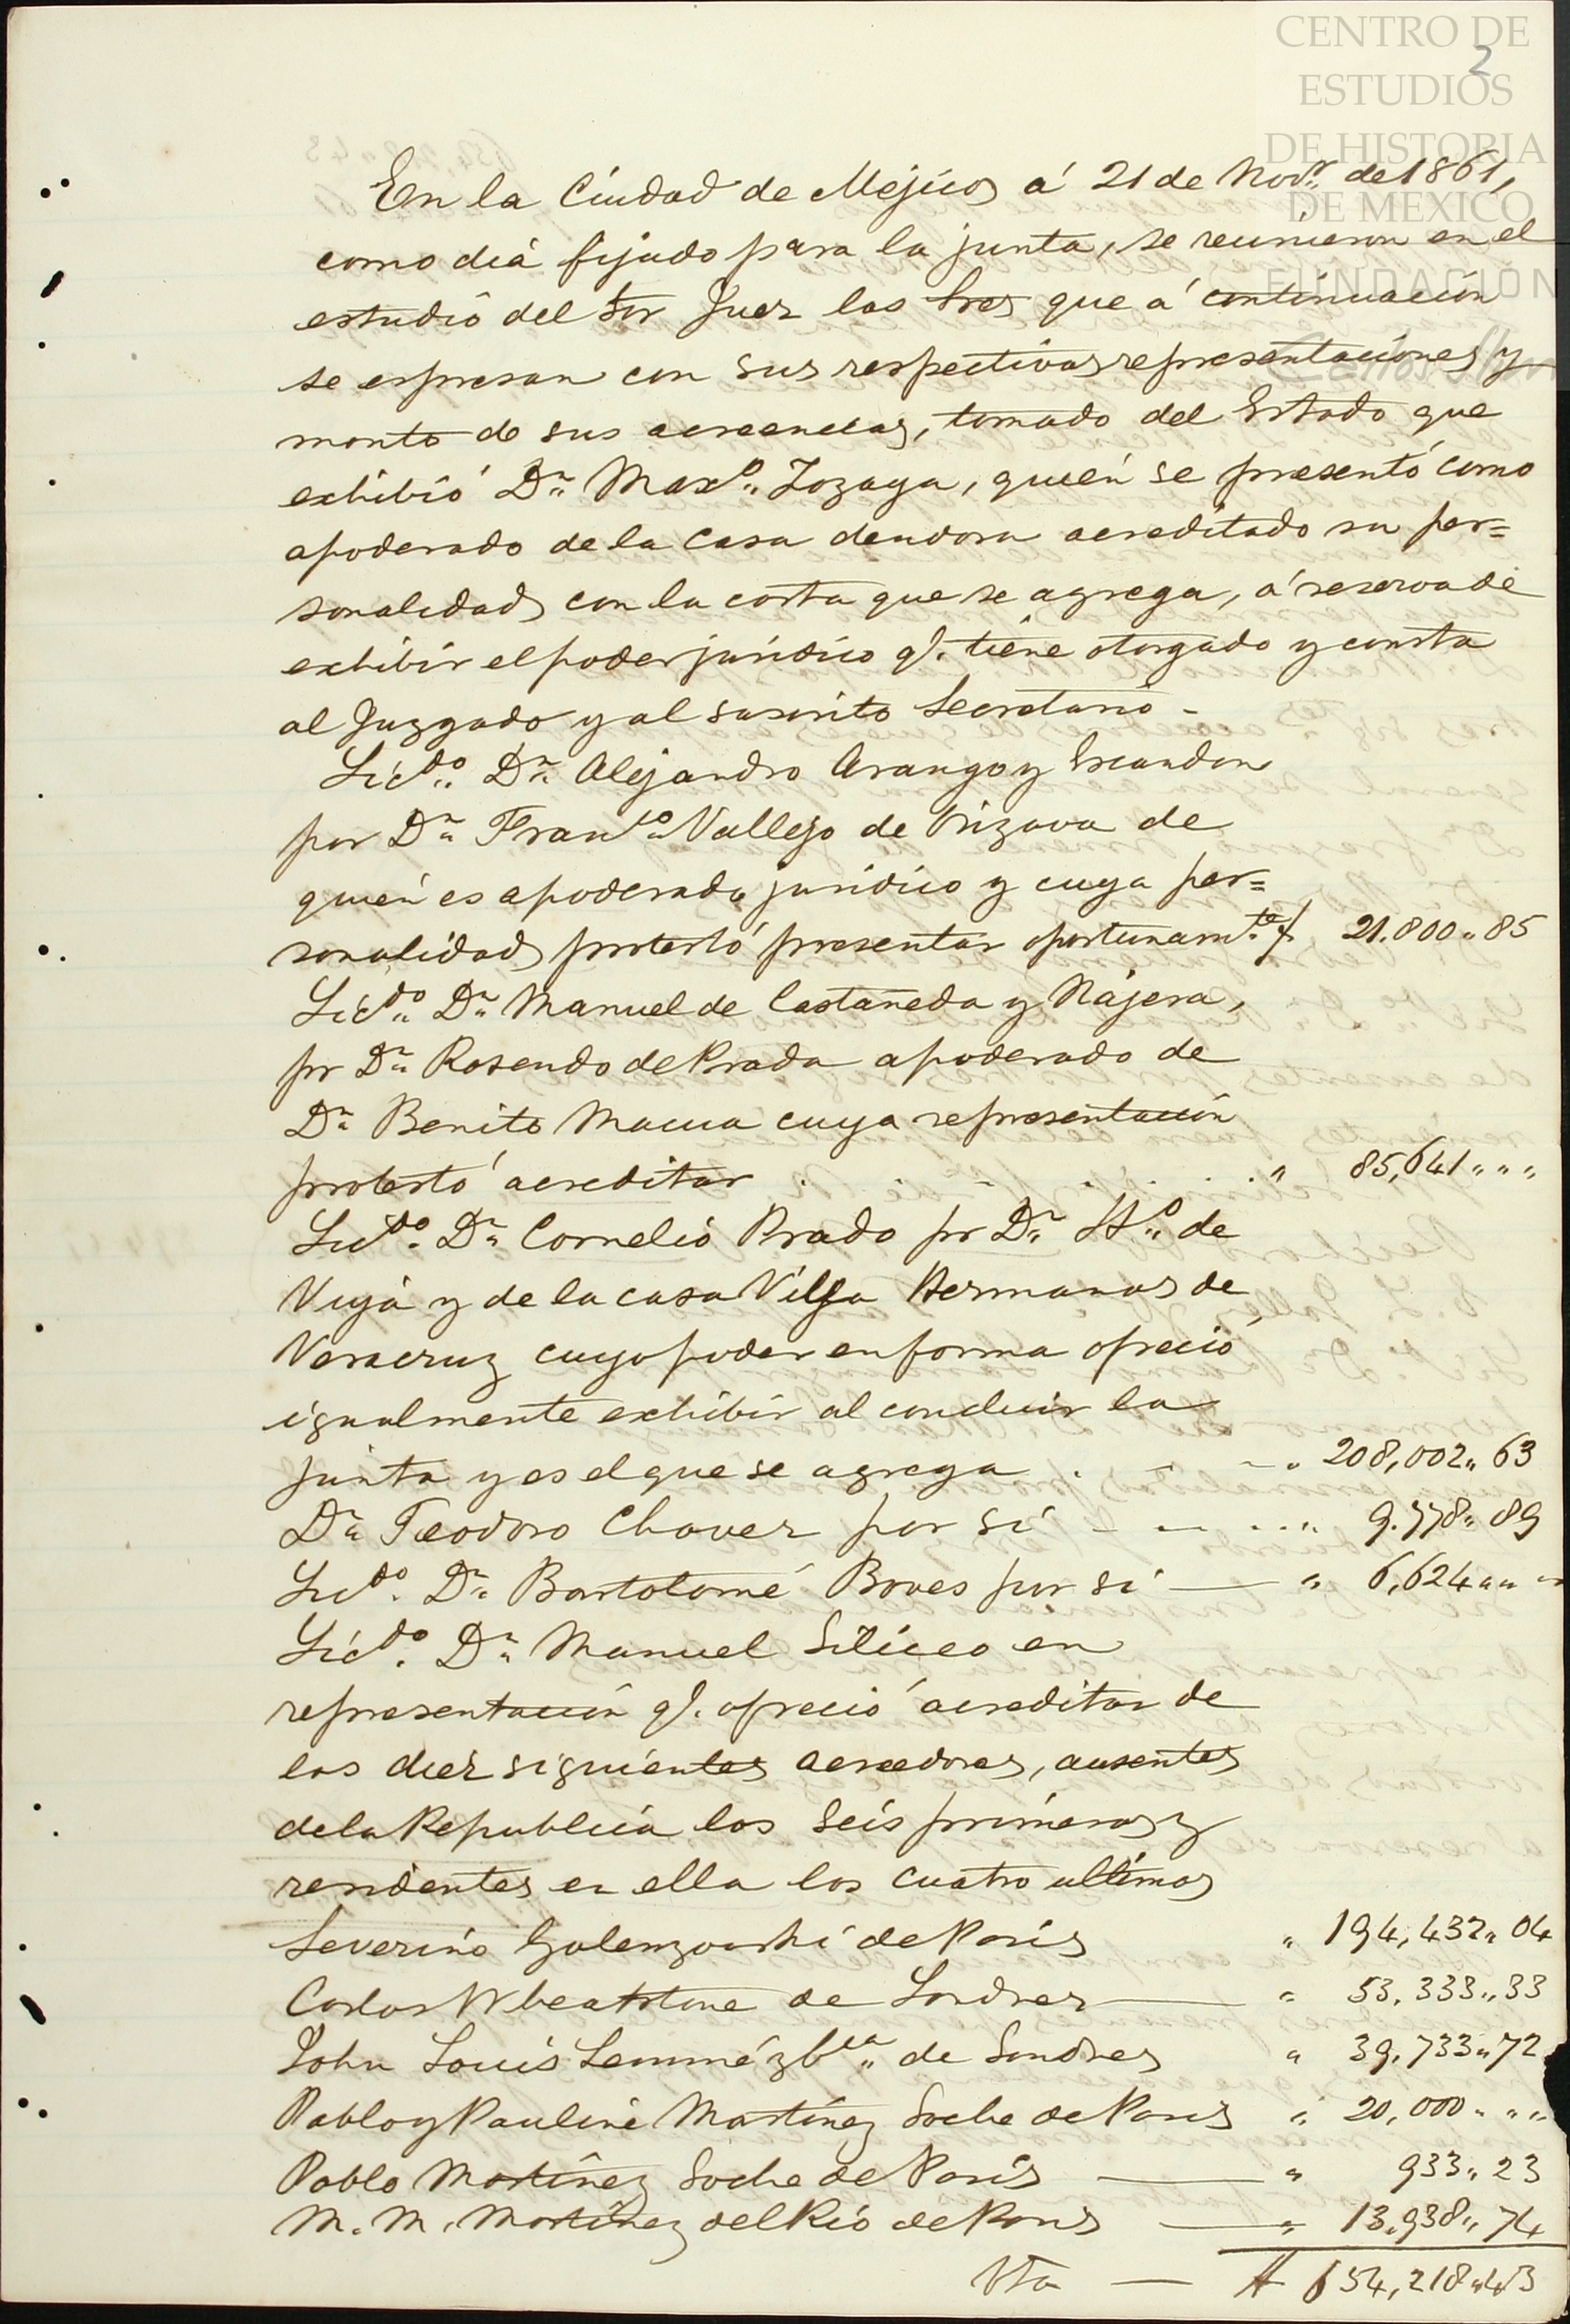 CENTRO DE
ESTUDIOS
DE HISTORIA
DE MÉXICO
FUNDACIÓN
Carlos Slim
2
En la Ciudad de Mejico á 21 de Novre. de 1861,
como dia fijado para la junta, se reunieron en el
estudio del Sor Juez los Sres que á continuacion
se espresan con sus respectivas representaciones y
monto de sus acreencias, tomado del Estado que
exhibió Dn. Maxo. Zozaya, quien se presentó como
apoderado de la Casa deudora acreditado su per=
sonalidad con la carta que se agrega, á reserva de
exhibir el poder juridico q. tiene otorgado y consta
al Juzgado y al suscrito Secretario -
Licdo. Dn. Alejandro Arango y Escandon
por Dn Franco Vallejo de Orizava de
quien es apoderado juridico y cuya per=
sonalidad protestó presentar oportunamte. $ 21.800 " 85
Licdo. Dn Manuel de Castañeda y Nájera,
pr Dn Rosendo de Prada apoderado de
Dn Benito Macua cuya representacion
protestó acreditar . . . . . " 85,641 " " "
Licdo. Dn Cornelio Prado pr Dn. Ho. de
Viya y de la casa Viya Hermanos de
Veracruz cuyo poder en forma ofreció
igualmente exhibir al concluir la
junta y es el que se agrega . - - " 208,002 " 63
Dn Teodoro Chavez por sí - - . . . " 9.778 " 89
Licdo. Dn. Bartolomé Boves por si — " 6,624 " " "
Licdo. Dn. Manuel Siliceo en
representacion q. ofreció acreditar de
los diez siguientes acreedores, ausentes
de la Republica los seis primeros y
residentes en ella los cuatro ultimos
Severino Galenzowski de Paris " 194,432 " 04
Carlos Wheatstone de Londres — " 53.333 " 33
John Louis Lemmé y Cia. de Londres " 39.733 " 72
Pablo y Pauline Martinez Soche de Paris " 20,000 " " "
Pablo Martinez Soche de Paris — " 933 " 23
M. M. Martinez del Rio de Paris — " 13.938 " 74
Vta — $ 654,218 " 43